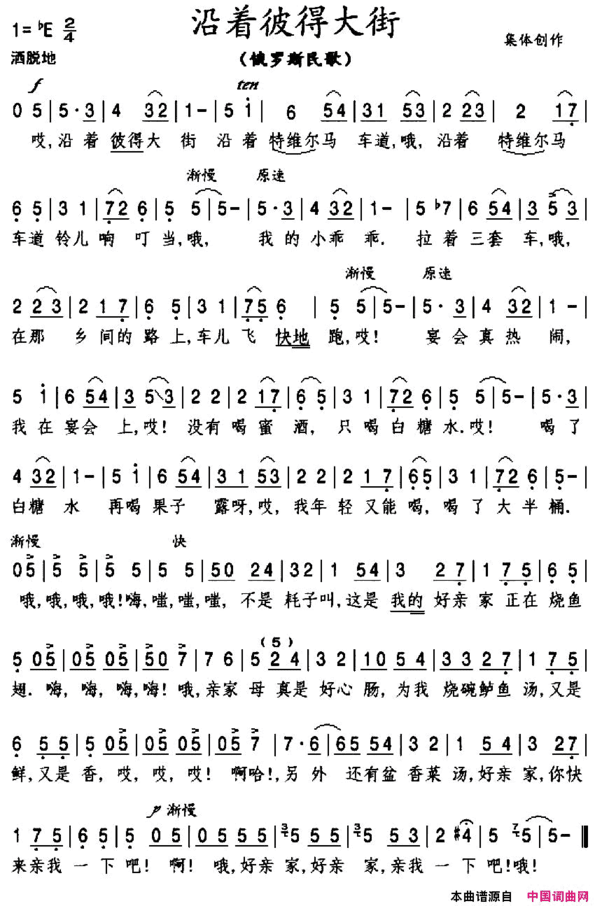 沿着彼得大街
1=♭E 2/4
（俄罗斯民歌）
集体创作
洒脱地
f ten
0 5|5·3|4 32|1-|5 i 6 54|31 53|2 23|2 17|
哎,沿着 彼得大 街 沿着特维尔马 车道,哦,沿着 特维尔马
渐慢 原速
6 5|3 1|72 6|5 5|5-|5·3|4 32|1-|5 ♭7|6 54|3 5 3|
车道 铃儿 响 叮 当,哦, 我的 小乖 乖. 拉着 三套 车,哦,
渐慢 原速
2 23|2 17|6 5|3 1|75 6|5 5|5-|5·3|4 32|1-|
在那 乡 间的 路 上,车儿 飞 快地 跑,哎! 宴会真热 闹,
5 i|6 54|3 53|2 2|2 17|6 5|3 1|72 6|5 5|5-|5·3|
我在宴会 上,哎! 没有喝蜜 酒, 只 喝白糖水.哎! 喝了
4 32|1-|5 i|6 54|31 53|2 2|2 17|65|3 1|72 6|5-|
白糖 水 再喝果子 露呀,哎,我年轻又能 喝,喝了大半桶.
渐慢 快
05|5 5|5 5|5 5|50 24|32 1|1 54|3 27|1 75|65|
哦,哦,哦,哦!嗨,嗤,嗤,嗤, 不是 耗子叫,这是 我的 好亲 家正在 烧鱼
(5)
5 05|05 05|50 7|7 6|5 24|32 1|10 54|33 27|1 75|
翅. 嗨, 嗨, 嗨,嗨! 哦,亲家 母 真是 好心 肠,为我 烧碗鲈鱼 汤,又是
6 55|5 05|05 05|05 7|7·6|65 54|32 1|1 54|3 27|
鲜,又是香,哎, 哎, 哎! 啊哈!,另 外 还有盆 香菜 汤,好亲 家,你快
p 渐慢
1 75|65|5 05|05 55|5 5|5 53|2 #4|5 5|5-‖
来亲我 一 下吧! 啊! 哦,好亲 家,好亲 家,亲我一 下吧!哦!
本曲谱源自 中国词曲网